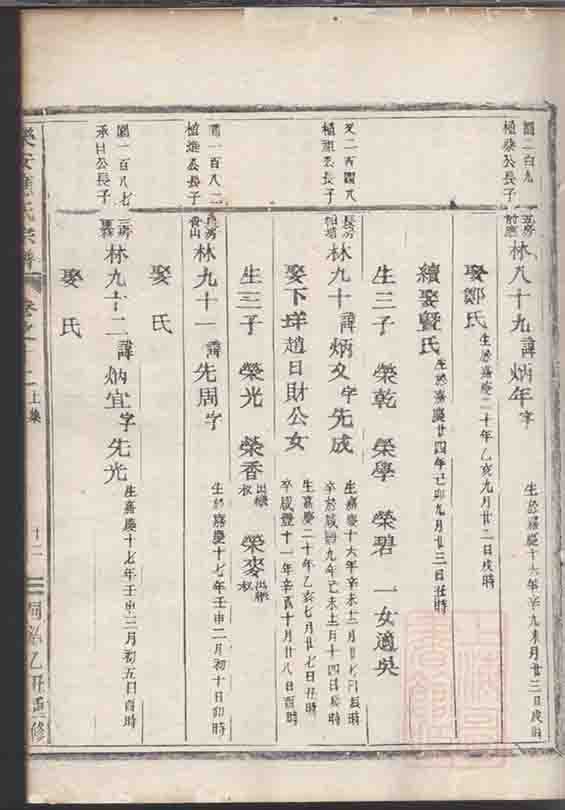 圖二百九
植榮公長子
五房
前應
林八十九 諱炳年字
生於嘉慶十六年辛未九月廿三日戌時
娶鄒氏 生於嘉慶二十年乙亥九月廿二日戌時
續娶暨氏 生於嘉慶廿四年己卯九月廿三日丑時
生三子 榮乾 榮學 榮碧 一女適吳
又二百四八
植 公長子
長房
林九十 諱炳文字先成
生嘉慶十六年辛未十二月廿七日辰時
卒於咸豐九年己未十一月十四日辰時
娶下垟趙日財公女
生嘉慶二十年乙亥七月廿七日丑時
卒咸豐十一年辛酉十月廿八日酉時
生三子 榮光 榮香出繼叔 榮麥出繼叔
圖一百八二
植進公長子
長房
林九十一 諱先周字
生於嘉慶十七年壬申二月初十日卯時
娶氏
圖一百八七
承日公長子
三房
林九十二 諱炳宜字先光
生嘉慶十七年壬申三月初五日酉時
娶氏
樂安應氏宗譜
上集
十二
同治乙丑重修